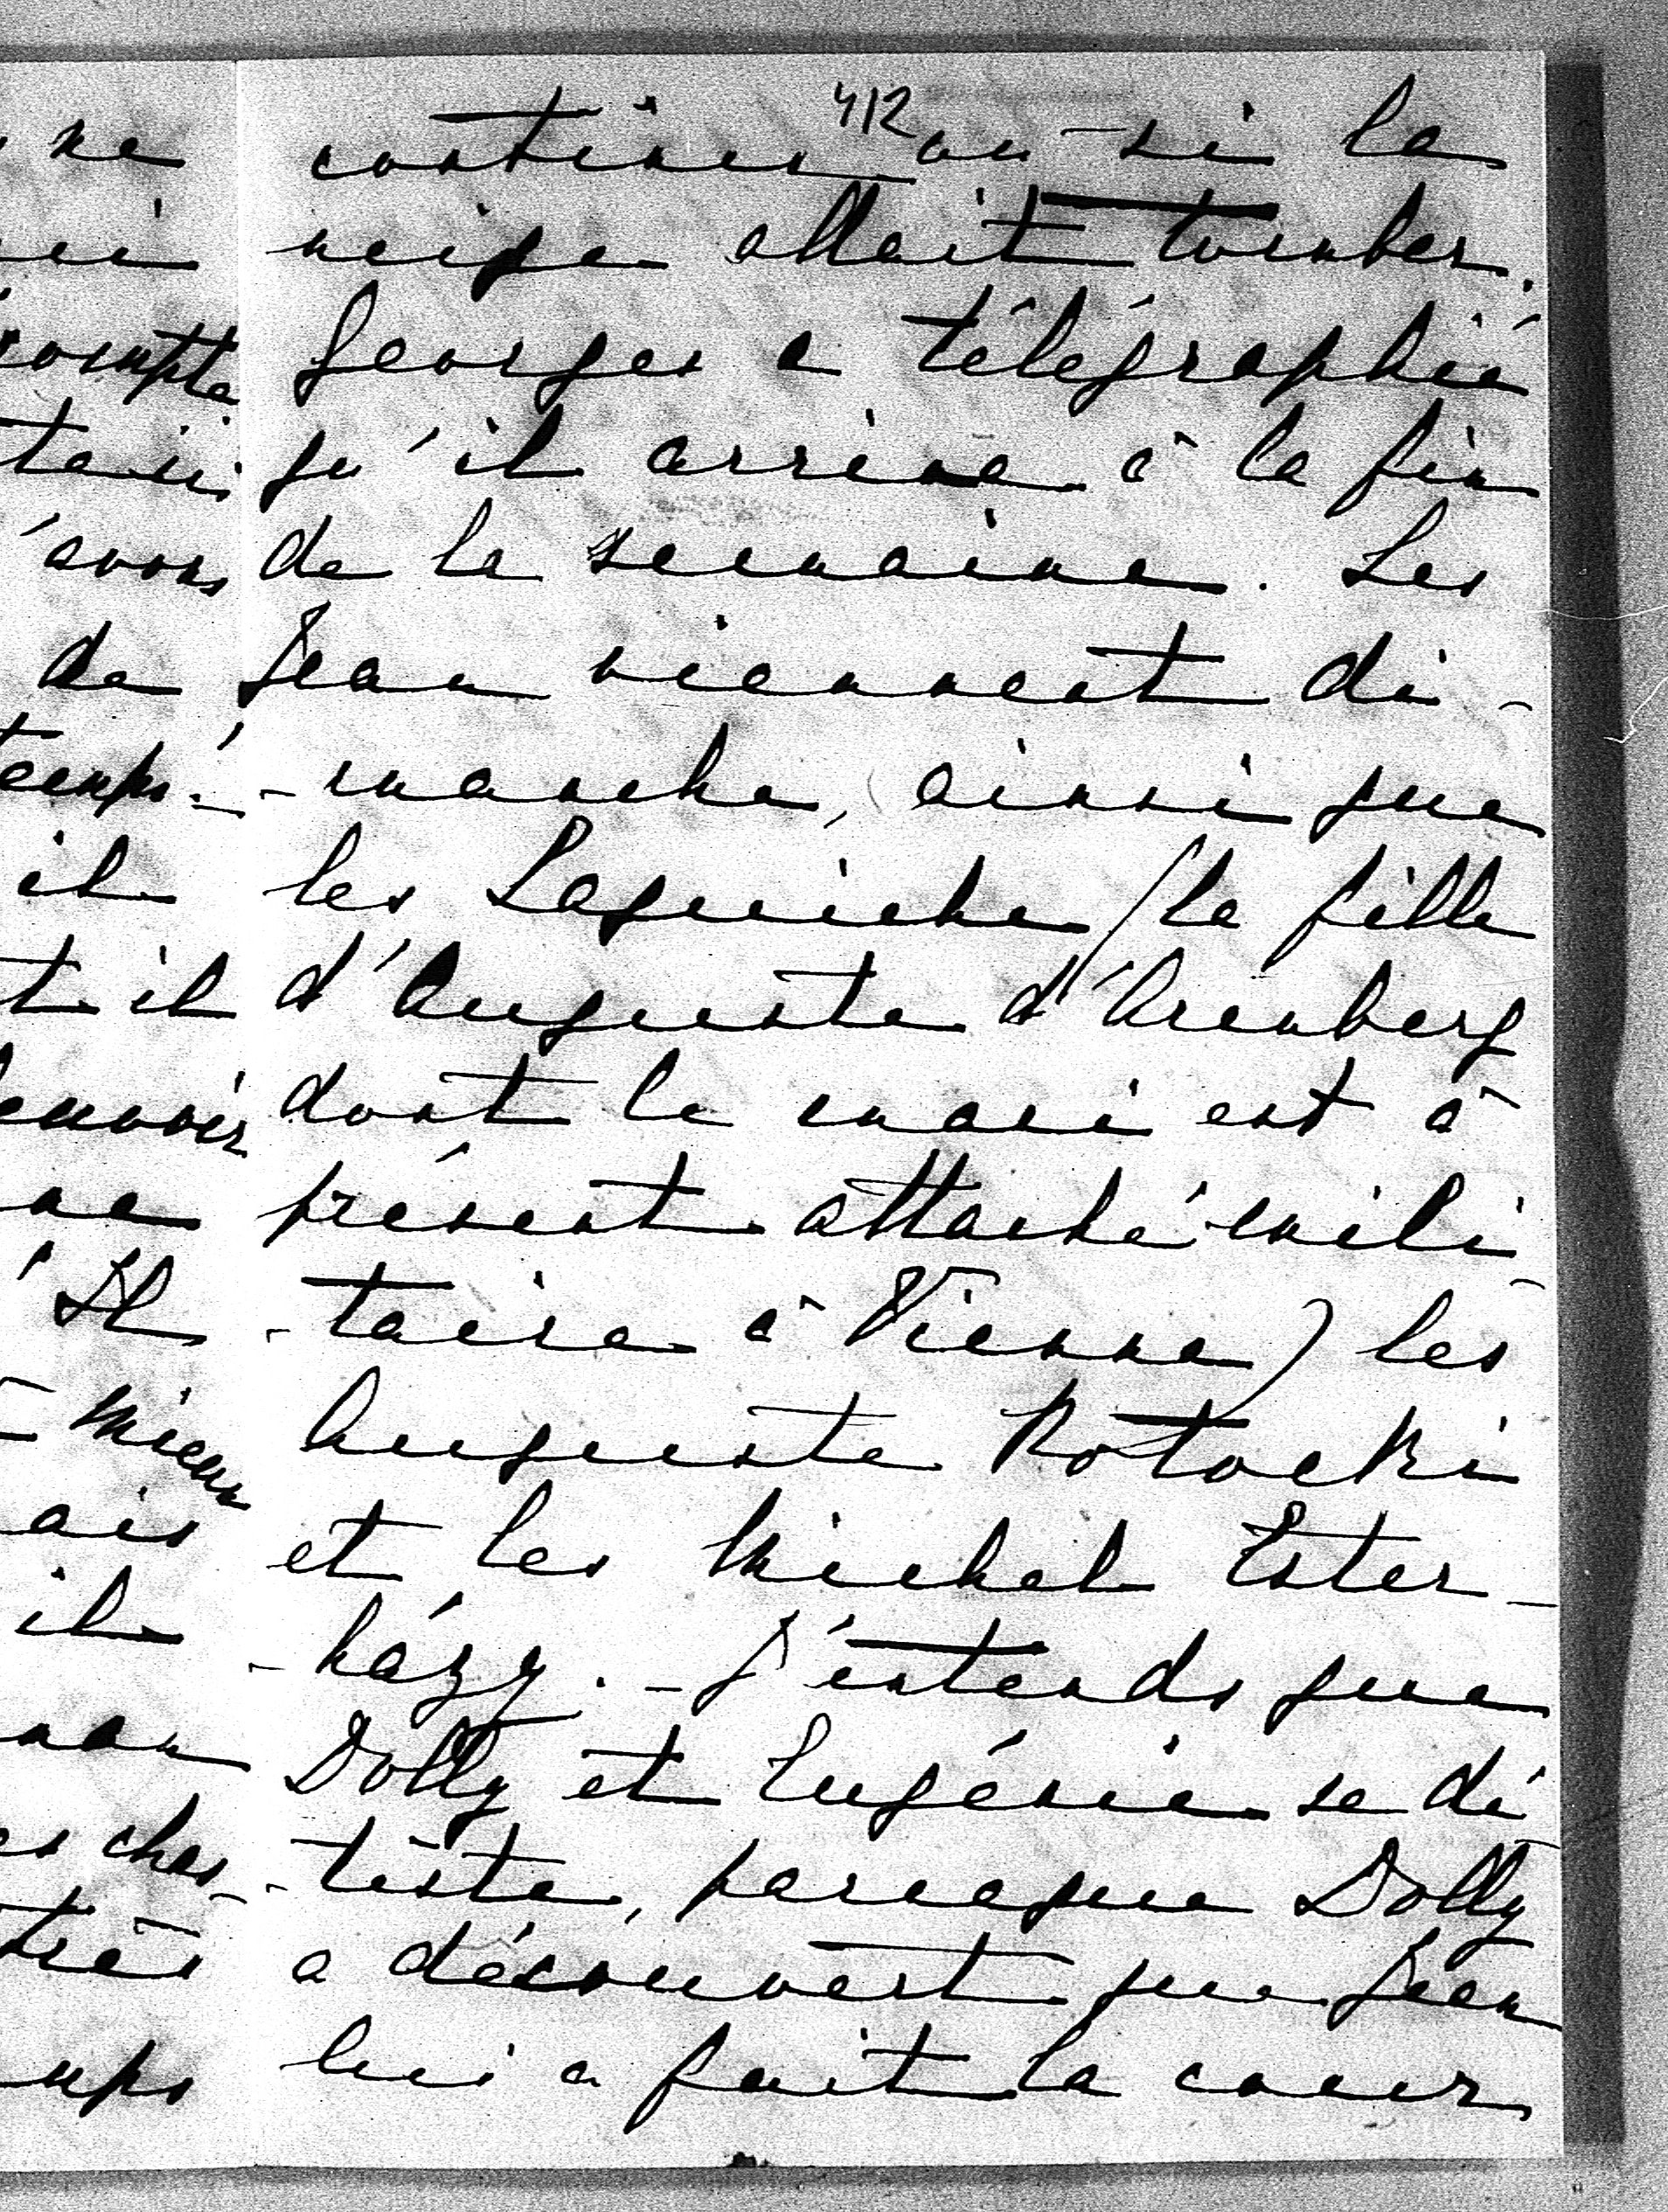 ne
ompte
avons
de
temps.
il
t il
ne
Il
mieux
ais
il
es chas-
très
412
continer ou si la
neige allait tomber.
Georges a télégraphié
qu'il arrive à la fin
de la semaine. Les
Jean viennent di-
-manche, ainsi que
les Laguiche (la fille
d'Auguste d'Arenberg
dont le mari est à
présent attaché mili-
-taire à Vienne) les
Auguste Potocki
et les Michel Ester-
-házy. - J'entends que
Dolly et Eugénie se dé-
-teste, parceque Dolly
a découvert que Jean
lui a fait la cour